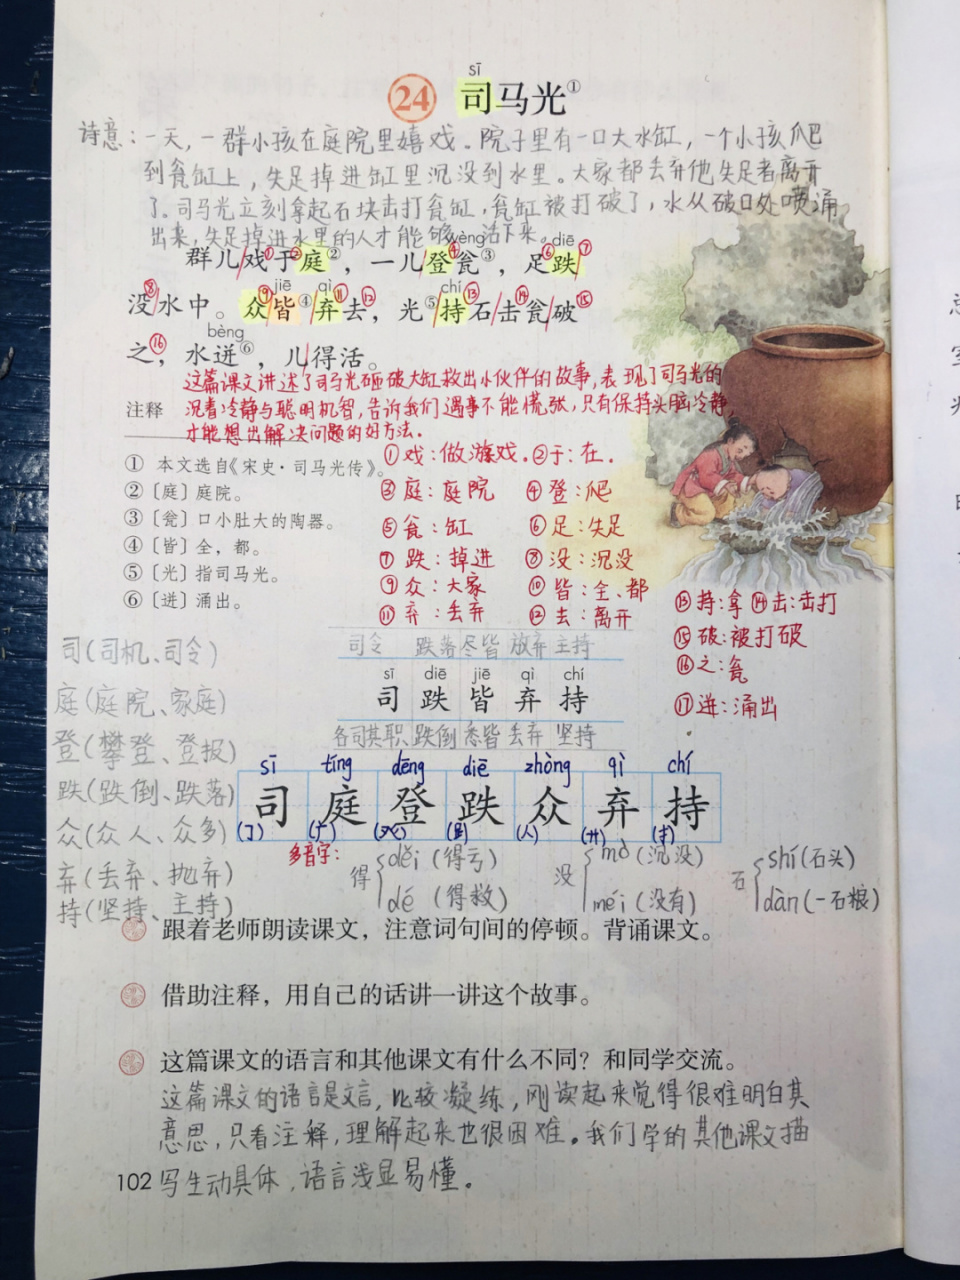 sī
24 司马光①
诗意：一天，一群小孩在庭院里嬉戏。院子里有一口大水缸，一个小孩爬
到瓮缸上，失足掉进缸里沉没到水里。大家都丢弃他失足者离开
了。司马光立刻拿起石块击打瓮缸，瓮缸被打破了，水从破口处喷涌
出来，失足掉进水里的人才能够活下来。
wèng diē
群儿戏于庭②，一儿登瓮③，足跌
jiē qì chí
没水中。众皆④弃去，光⑤持石击瓮破
bèng
之，水迸⑥，儿得活。
这篇课文讲述了司马光砸破大缸救出小伙伴的故事，表现了司马光的
沉着冷静与聪明机智，告诉我们遇事不能慌张，只有保持头脑冷静，
才能想出解决问题的好方法。
注释
① 本文选自《宋史·司马光传》。
②〔庭〕庭院。
③〔瓮〕口小肚大的陶器。
④〔皆〕全，都。
⑤〔光〕指司马光。
⑥〔迸〕涌出。
①戏：做游戏．②于：在．
③庭：庭院 ④登：爬
⑤瓮：缸 ⑥足：失足
⑦跌：掉进 ⑧没：沉没
⑨众：大家 ⑩皆：全、都
⑪弃：丢弃 ⑫去：离开
⑬持：拿 ⑭击：击打
⑮破：被打破
⑯之：瓮
⑰迸：涌出
司(司机、司令)
庭(庭院、家庭)
登(攀登、登报)
跌(跌倒、跌落)
众(众人、众多)
弃(丢弃、抛弃)
持(坚持、主持)
司令 跌落 尽皆 放弃 主持
sī diē jiē qì chí
司 跌 皆 弃 持
各司其职 跌倒 悉皆 丢弃 坚持
sī tíng dēng diē zhòng qì chí
司 庭 登 跌 众 弃 持
(㇆) (广) (癶) (⻊) (人) (廾) (扌)
多音字：
得 děi (得亏) dé (得救)
没 mò (沉没) méi (没有)
石 shí (石头) dàn (一石粮)
跟着老师朗读课文，注意词句间的停顿。背诵课文。
借助注释，用自己的话讲一讲这个故事。
这篇课文的语言和其他课文有什么不同？和同学交流。
这篇课文的语言是文言，比较凝练，刚读起来觉得很难明白其
意思，只看注释，理解起来也很困难。我们学的其他课文描
写生动具体，语言浅显易懂。
102